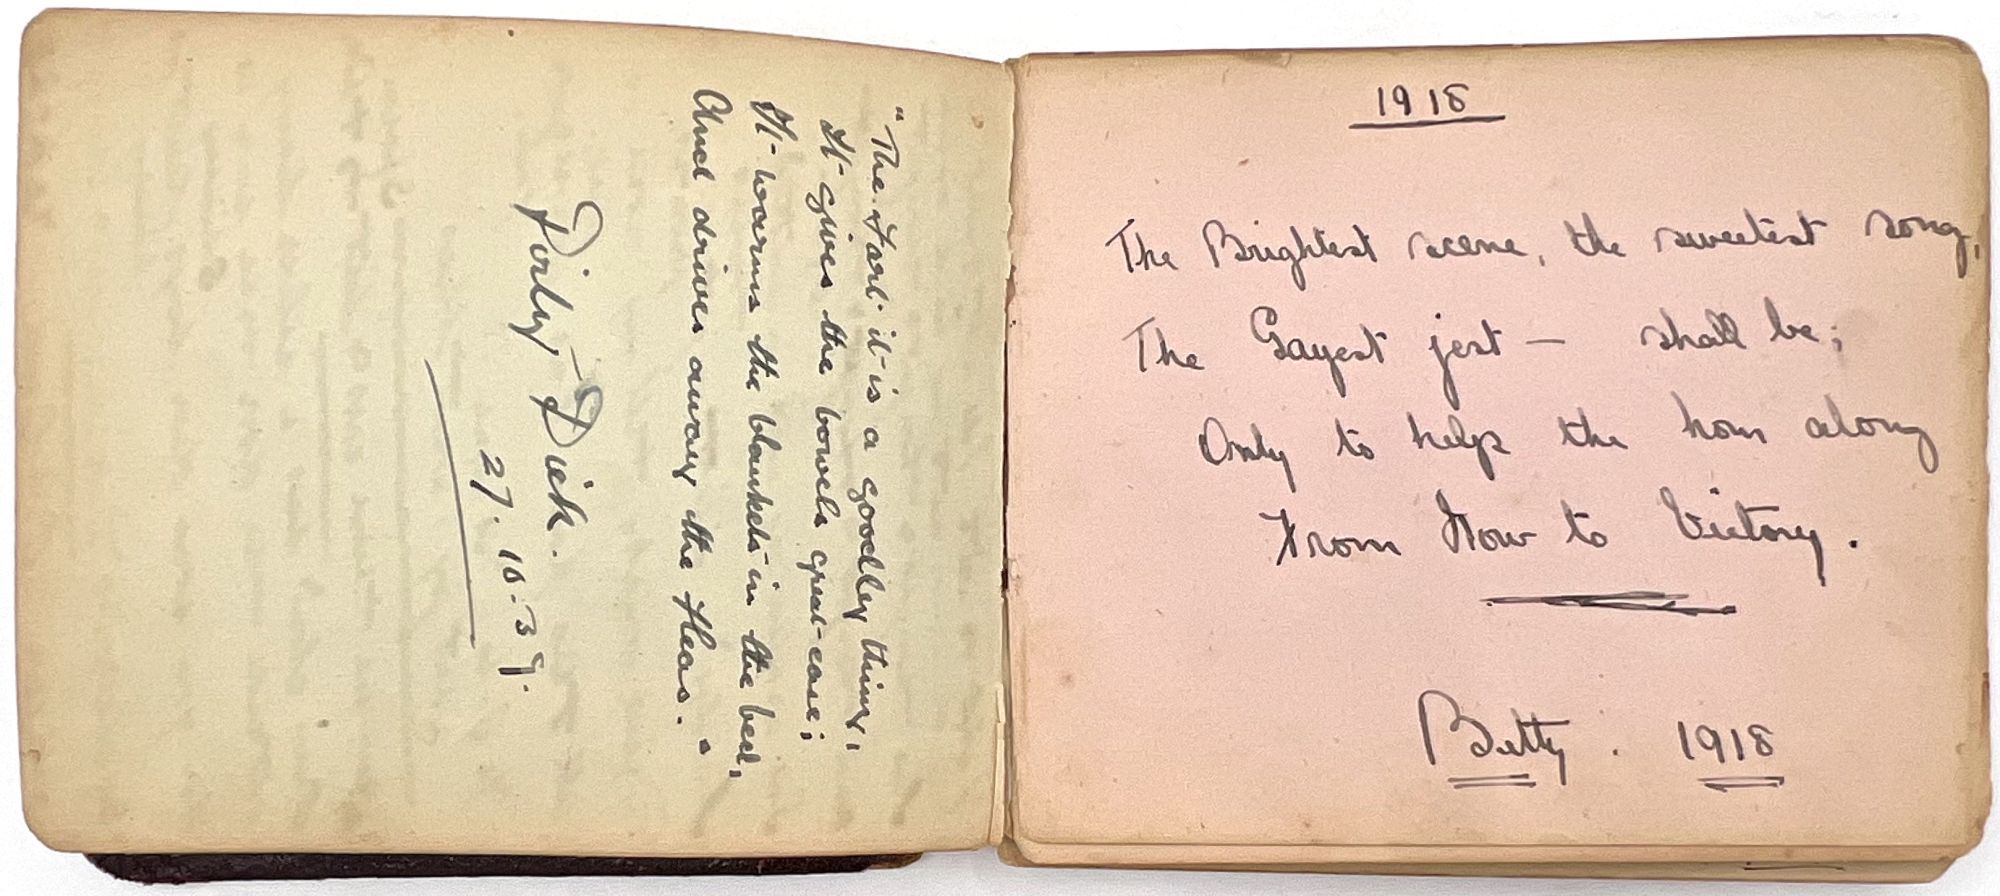 "The Fart it is a goodly thing,
It gives the bowels great ease;
It warms the blankets in the bed,
And drives away the fleas."
Dirty Dick.
27.10.39.
1918
The Brightest scene, the sweetest song,
The Gayest jest — shall be;
Only to help the hour along
From Now to Victory.
Betty. 1918